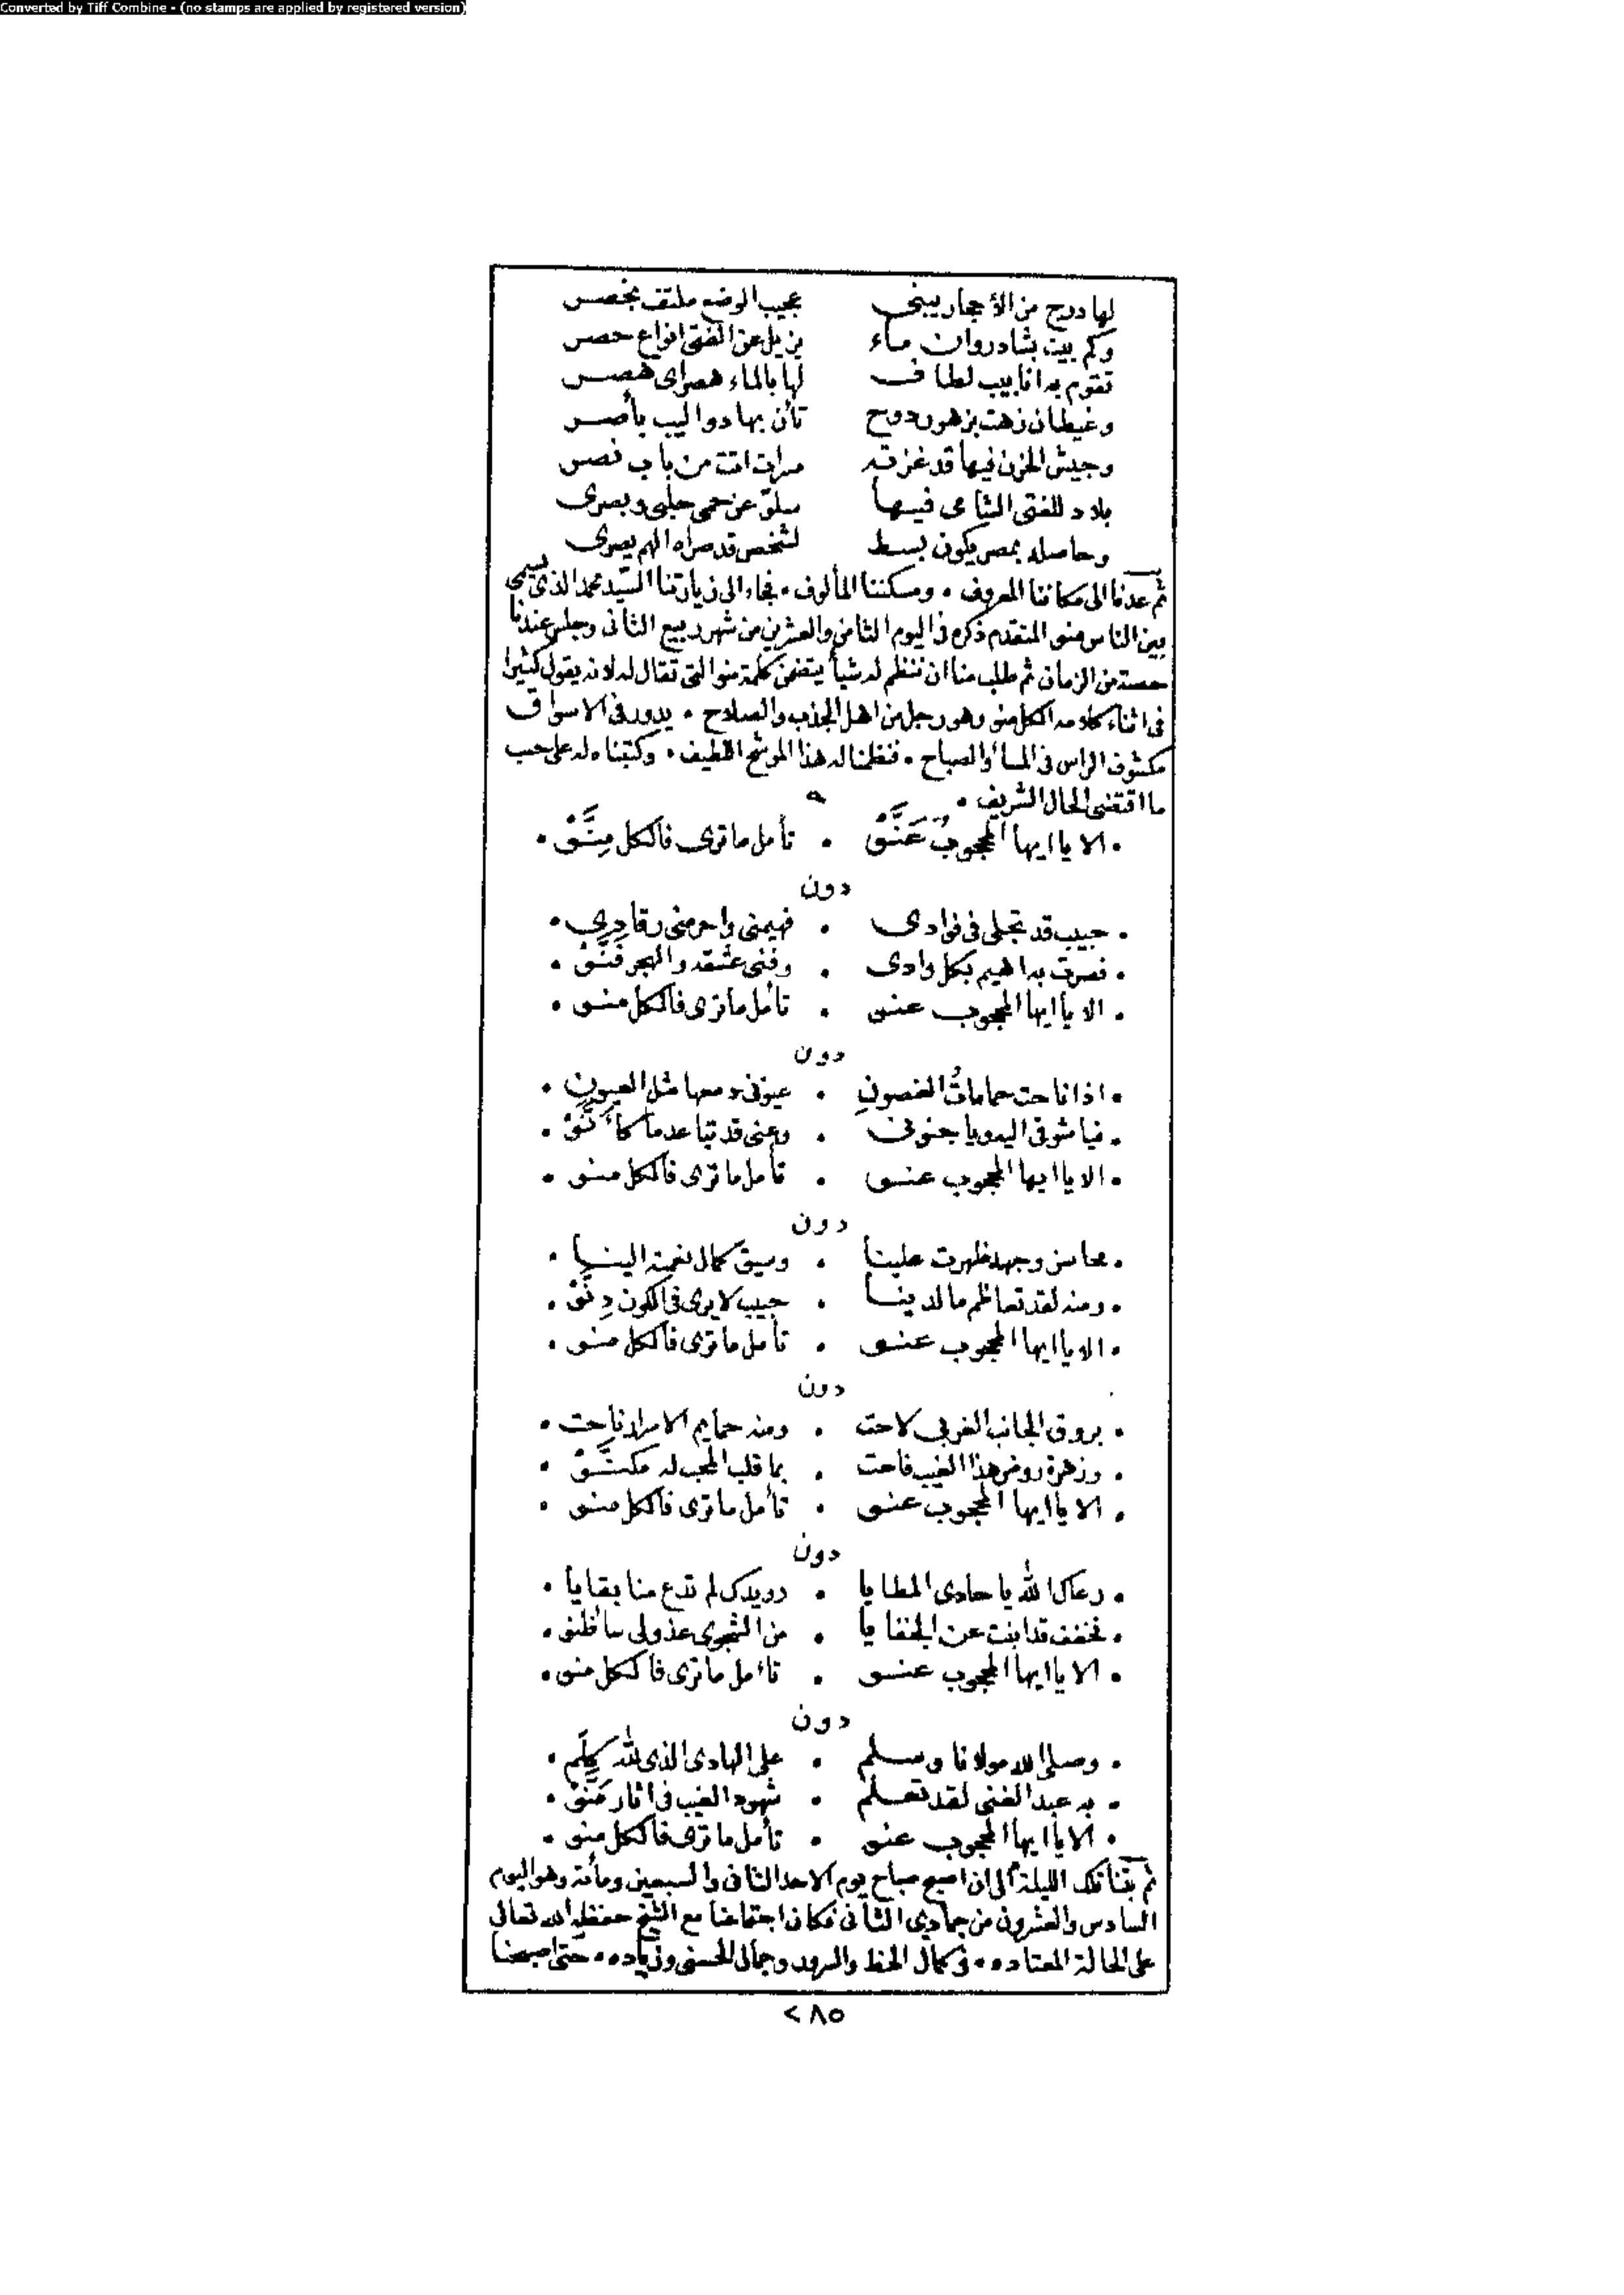 Converted by Tiff Combine - (no stamps are applied by registered version)
لها درج من الأحجار يبنى عجيب الوضع ملتف بخصر
وكم بيت بشادروان ماء يزيل عن الفتى انواع حصر
تقوم به انابيب لطاف لها بالماء هصر اى هصر
وغيطان زهت بزهور دوح تأن بها دواليب بأصر
وجيش الحزن فيها قد غزته مرات اتت من باب نصر
بلاد للفتى الشامى فيها سلوّ عن حمى حلب وبصرى
وحاصله بمصر يكون بسط لشخص قد صراه الهم يصرى
ثم عدنا الى مكاننا المعروف . ومسكننا المألوف . فجاء الى زيارتنا السيّد محمد الذى يسمى
بين الناس منو المتقدم ذكره فى اليوم الثامن والعشرين من شهر ربيع الثانى وجلس عندنا
حصة من الزمان ثم طلب منا ان ننظم له شيأ يتضمن كلمة منو التى تقال له لانه يقول كثيرا
فى اثناء كلامه الكل منو وهو رجل من اهل الجذب والصلاح . يدور فى الاسواق
مكشوف الراس فى المسا والصباح . فنظمنا له هذا الموشح اللطيف . وكتبناه له على حسب
ما اقتضى الحال الشريف .
. الا يا ايها المحجوبُ عَنَّوْ . تأمل ما ترى فالكل مِنَّوْ .
دون
. حبيب قد تجلى فى فوادى . فهيمنى واحرمنى رقادِى .
. فصرت به اهيم بكل وادى . وفنى عشقه والهجر فَنَّوْ .
. الا يا ايها المحجوب عنو . تأمل ما ترى فالكل منو .
دون
. اذا ناحت حماماتُ الغصونِ . عيونى دمعها مثل العيونِ .
. فيا شوقى اليه ويا جنونى . وعنى قد تباعد ما كأَنَّوْ .
. الا يا ايها المحجوب عنو . تأمل ما ترى فالكل منو .
دون
. محاسن وجهه ظهرت علينا . وسيق كمال نعمته الينا .
. ومنه لقد تعاظم ما لدينا . حبيب لا يرى فى الكون دِنَّوْ .
. الا يا ايها المحجوب عنو . تأمل ما ترى فالكل منو .
دون
. بروق الجانب الغربى لاحت . ومنه حمايم الاسرار ناحت .
. وزهرة روض هذا الغيب فاحت . بما قلب المحب له مكنَّوْ .
. الا يا ايها المحجوب عنو . تأمل ما ترى فالكل منو .
دون
. رعاك الله يا حادى المطايا . رويدك لم تدع منا بقايا .
. فخفف قد ابنت عن الخفايا . من الشجوى عذولى ساء ظنو .
. الا يا ايها المحجوب عنو . تأمل ما ترى فالكل منو .
دون
. وصلى الله مولانا وسلم . على الهادى الذى لله كلَّم .
. به عبد الغنى لقد تعلم . شهود الغيب فى اثار مَنَّوْ .
. الا يا ايها المحجوب عنو . تأمل ما ترى فالكل منو .
ثم بتنا تلك الليلة الى ان اصبح صباح يوم الاحد الثانى والسبعين ومأئة وهو اليوم
السادس والعشرون من جمادى الثانى فكان اجتماعنا مع الشيخ حفظه الله تعالى
على الحالة المعتاده . فى كمال الحظ والسرور وجمال الحسنى وزياده . حتى اصبحنا
٢٨٥